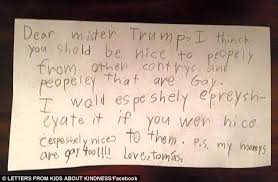 Dear mister Trump. I thinck
you shold be nice to peopely
from other contrys and
peopeley that are Gay.
I wold espeshely epreysh-
eyate it if you wer nice
(espeshely nice) to them. p.s. my momys
are gay too!!! Love, tomas.
© LETTERS FROM KIDS ABOUT KINDNESS/Facebook